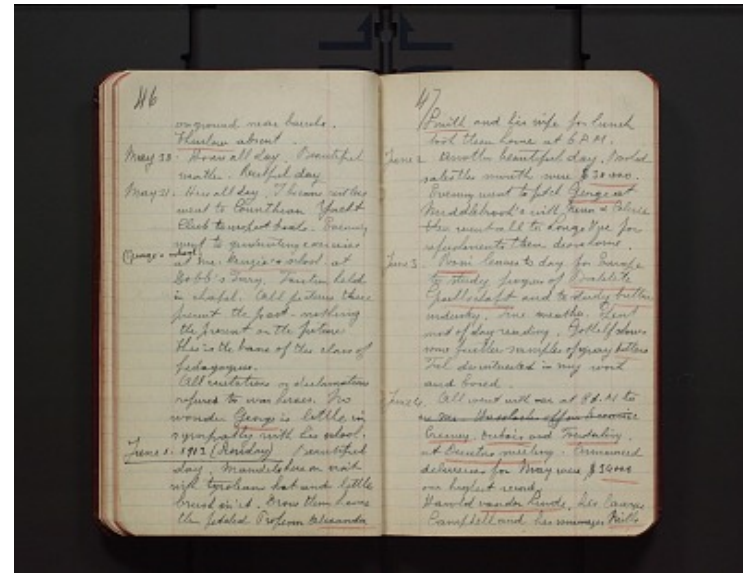 46
on ground near
Thurlow absent.
May 30. Home all day. Beautiful
weather. Restful day
May 31. Here all day.
went to Corinthian Yacht
Club to inspect boats. Evening
went to graduating exercises
George's school
at Mc. school at
Dobb's Ferry. held
in chapel. All pictures there
present the past - nothing
the present or the future
this is the bane of the class of
pedagogues.
All recitations or declamations
referred to war heroes. No
wonder George is little in
sympathy with his school.
June 1. 1913 (Sunday) Beautiful
day. here on visit
with tyrolean hat and little
brush in it. Drove them home
then Professor Alexander
47
Smith and his wife for lunch
took them home at 6 P.M.
June 2. Another beautiful day.
sales this month were $30.000.
Evening went to fetch George at
Middlebrook's with and Celine
then went all to Longue Vue for
refreshments then drove home.
June 3. leaves to day for Europe
to study progress of Bakelite
Gesellschaft and to study better
industry. Fine weather. Spent
most of day reading. Gotthelf shows
some further samples of
Feel disinterested in my work
and bored.
June 4. All went with me at P.M. to
at Directors meeting. Announced
deliveries for May were $34000
our highest record.
Harold van der Linde, his cousin
Campbell and his manager